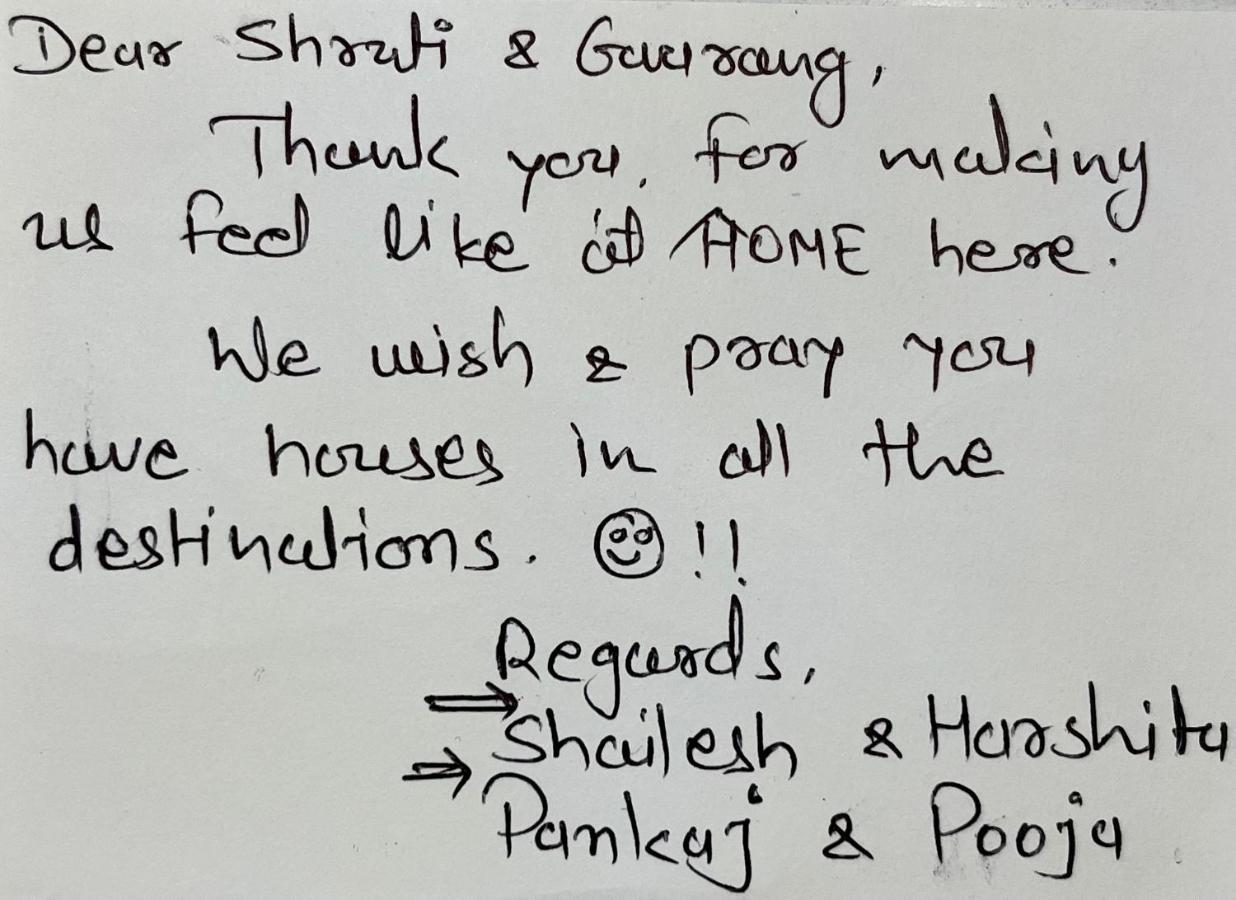 Dear Shruti & Gaurang,
Thank you, for making
us feel like at HOME here.
We wish & pray you
have houses in all the
destinations. ☺ !!
Regards,
⇒ Shailesh & Harshita
⇒ Pankaj & Pooja